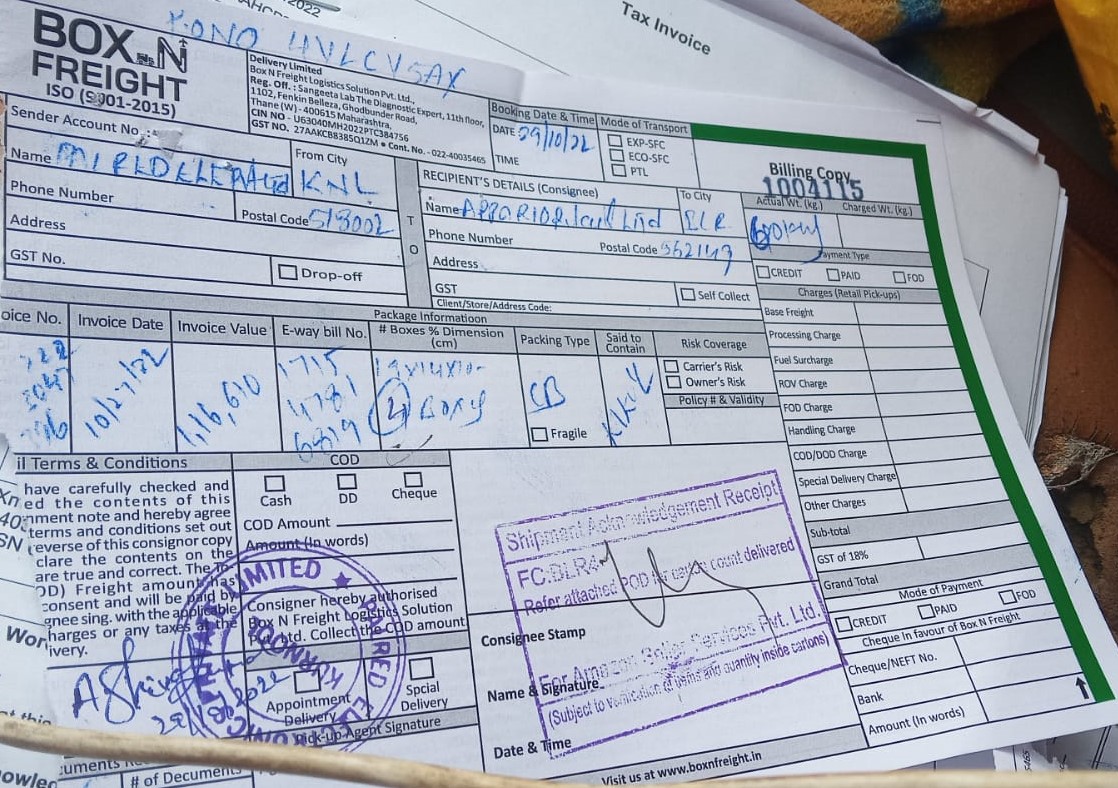 2022
Tax Invoice
BOX N
FREIGHT
ISO (9001-2015)
Delivery Limited
Box N Freight Logistics Solution Pvt. Ltd.,
Reg. Off. : Sangeeta Lab The Diagnostic Expert, 11th floor,
1102, Fenkin Belleza, Ghodbunder Road,
Thane (W) - 400615 Maharashtra,
CIN NO - U63040MH2022PTC384756
GST NO. 27AAKCB8385Q1ZM ● Cont. No. - 022-40035465
Booking Date & Time
DATE 29/10/22
TIME
Mode of Transport
EXP-SFC
ECO-SFC
PTL
Billing Copy
1004115
Sender Account No.
Name
From City
KNL
Phone Number
Postal Code 518002
Address
GST No.
Drop-off
TO
RECIPIENT'S DETAILS (Consignee)
Name
To City
Phone Number
Postal Code 562147
Address
GST
Self Collect
Client/Store/Address Code:
Actual Wt. (kg.) Charged Wt. (kg.)
ayment Type
CREDIT PAID FOD
Charges (Retail Pick-ups)
Base Freight
Processing Charge
Fuel Surcharge
ROV Charge
FOD Charge
Handling Charge
COD/DOD Charge
Special Delivery Charge
Other Charges
Sub-total
GST of 18%
Grand Total
Mode of Payment
CREDIT PAID FOD
Cheque In favour of Box N Freight
Cheque/NEFT No.
Bank
Amount (In words)
Package Informatioon
oice No. Invoice Date Invoice Value E-way bill No. # Boxes % Dimension (cm) Packing Type Said to Contain Risk Coverage
10/27/22
1,16,610
1715
4781
6819
CB
Fragile
Carrier's Risk
Owner's Risk
Policy # & Validity
il Terms & Conditions
have carefully checked and
ed the contents of this
nment note and hereby agree
terms and conditions set out
reverse of this consignor copy
clare the contents on the
are true and correct. The
OD) Freight amount has
consent and will be paid by
gnee sing. with the applicable
harges or any taxes at the
ivery.
COD
Cash DD Cheque
COD Amount
Amount (In words)
Consigner hereby authorised
Box N Freight Logistics Solution
Pvt. Ltd. Collect the COD amount
Appointment Delivery
Spcial Delivery
Pick-up Agent Signature
Shipment Acknowledgement Receipt
FC:BLR4
Refer attached POD for carton count delivered
For Amazon Seller Services Pvt. Ltd.
(Subject to verification of items and quantity inside cartons)
Consignee Stamp
Name & Signature
Date & Time
Visit us at www.boxnfreight.in
# of Documents